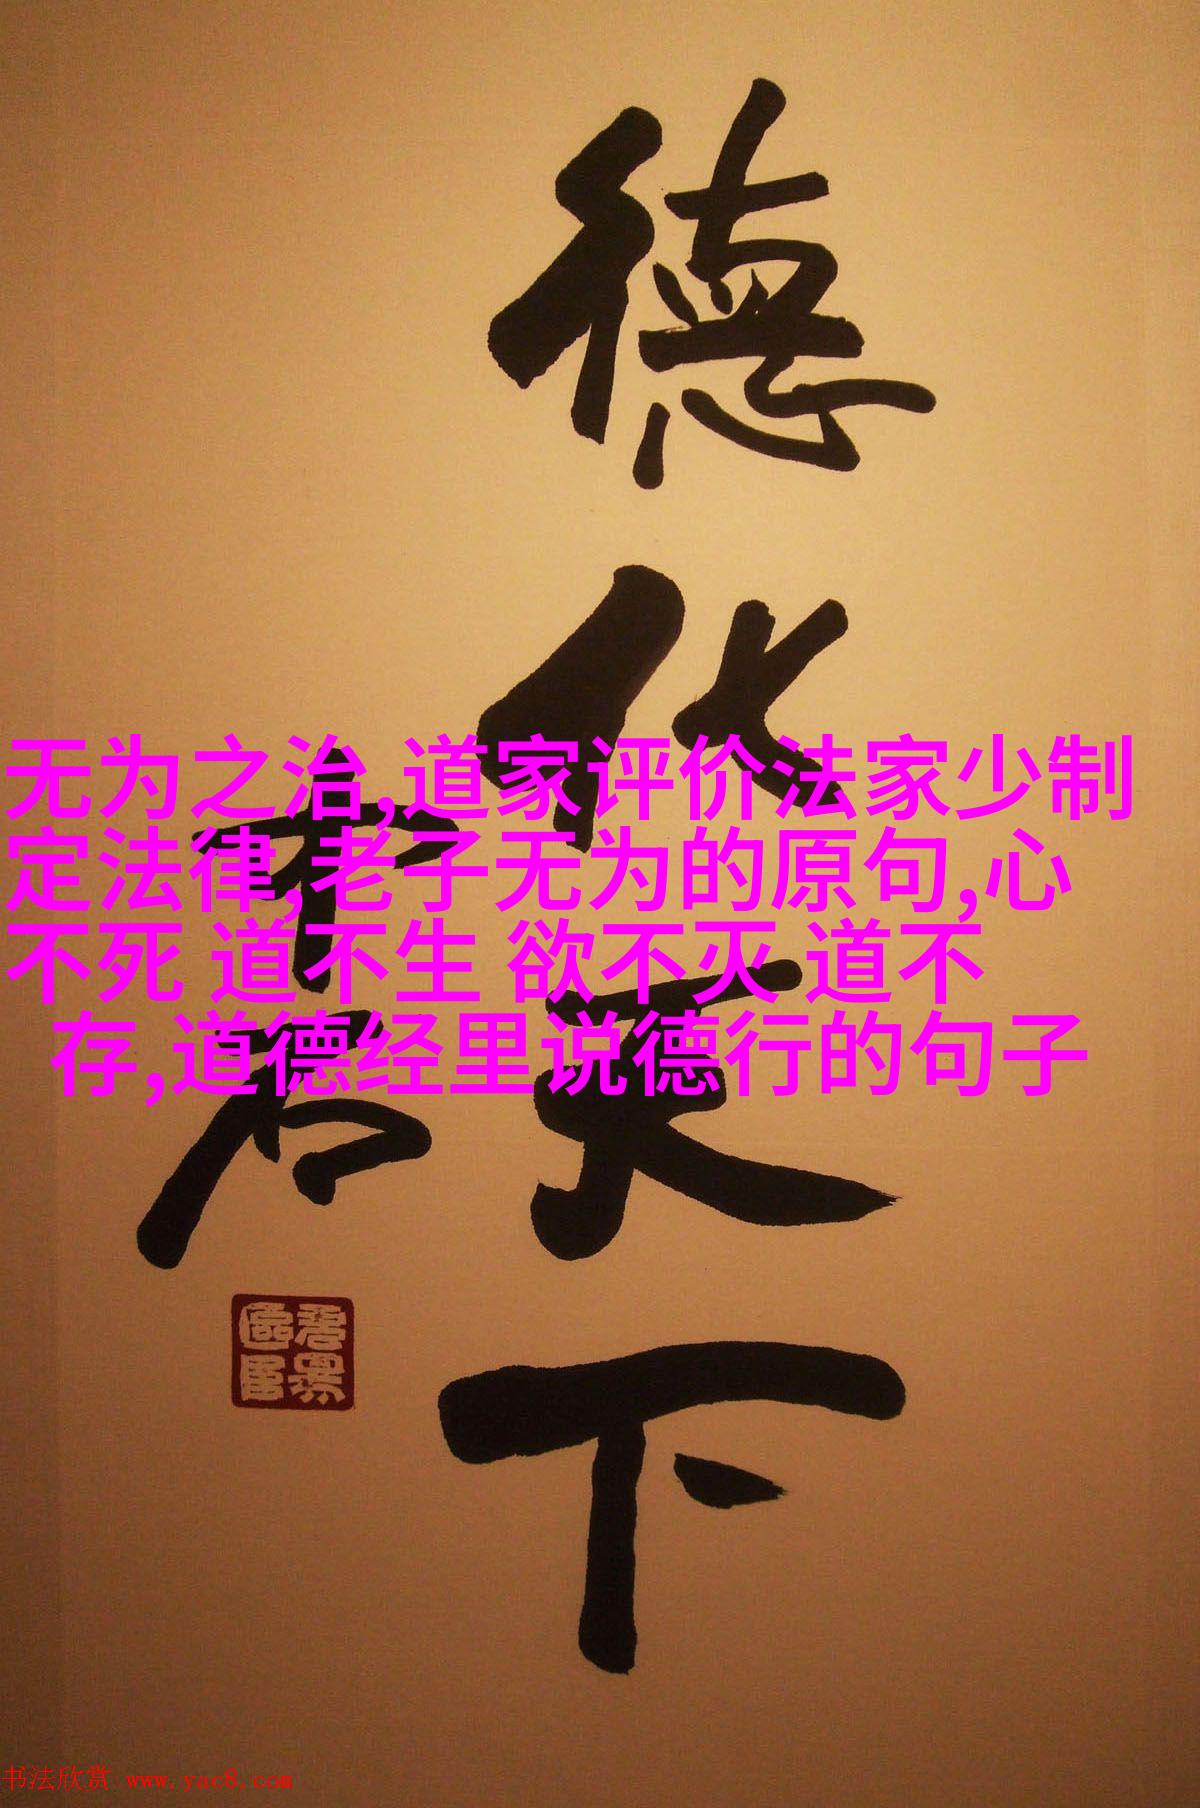 德化天下
中石
无为之治,道家评价法家少制
定法律,老子无为的原句,心
不死 道不生 欲不灭 道不
存,道德经里说德行的句子
书法欣赏 www.yac8.com